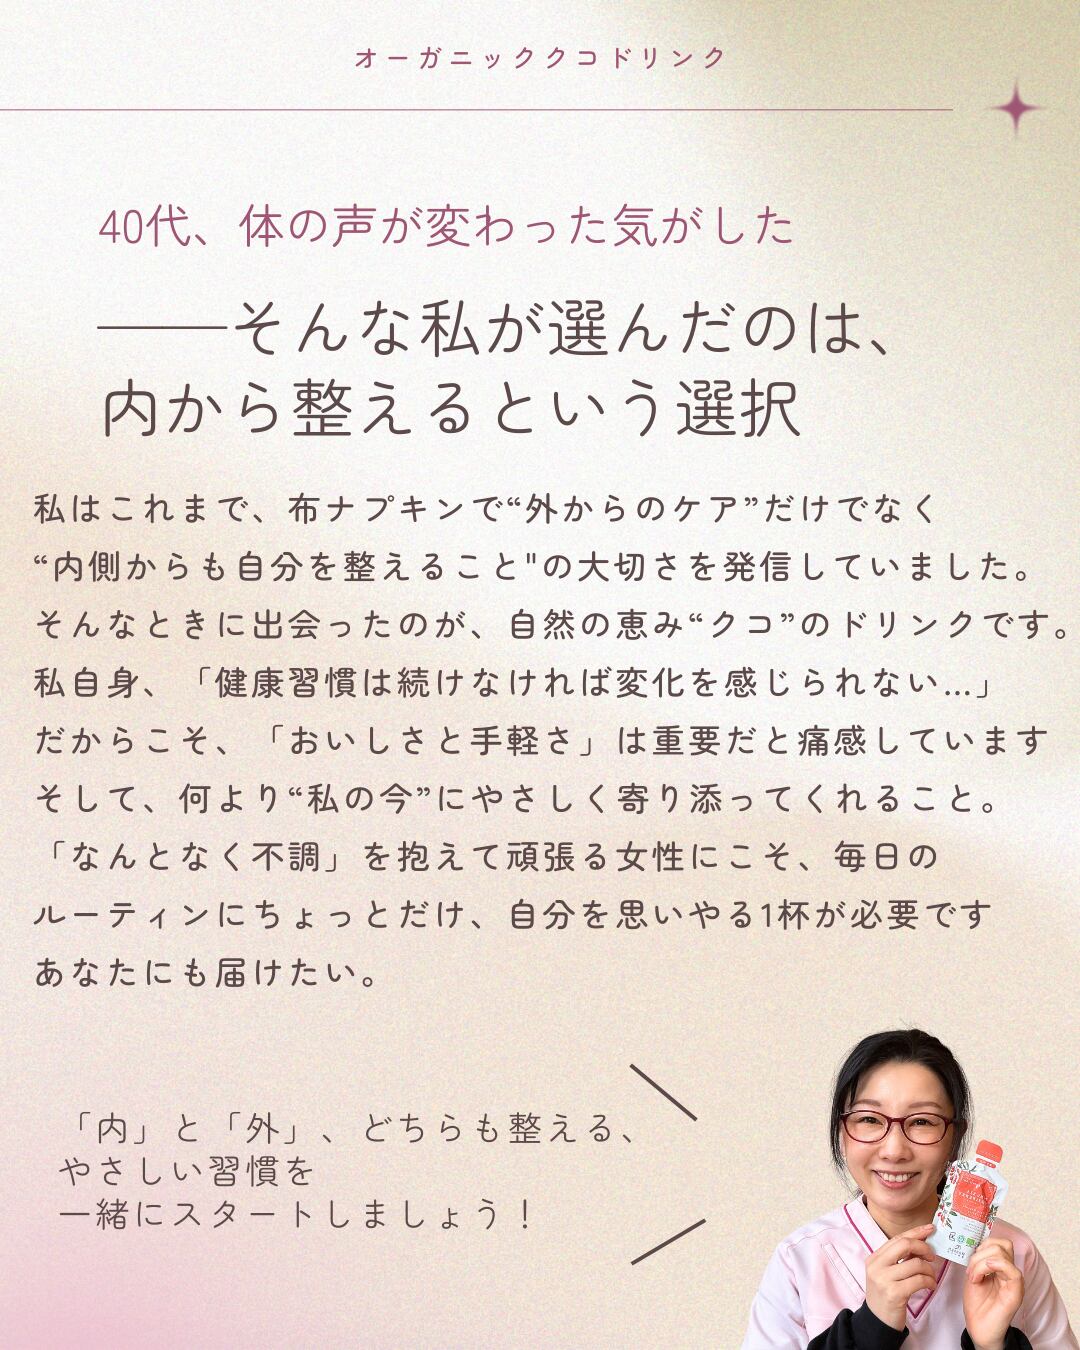 オーガニッククコドリンク
40代、体の声が変わった気がした
──そんな私が選んだのは、
内から整えるという選択
私はこれまで、布ナプキンで“外からのケア”だけでなく
“内側からも自分を整えること"の大切さを発信していました。
そんなときに出会ったのが、自然の恵み“クコ”のドリンクです。
私自身、「健康習慣は続けなければ変化を感じられない...」
だからこそ、「おいしさと手軽さ」は重要だと痛感しています
そして、何より“私の今”にやさしく寄り添ってくれること。
「なんとなく不調」を抱えて頑張る女性にこそ、毎日の
ルーティンにちょっとだけ、自分を思いやる1杯が必要です
あなたにも届けたい。
「内」と「外」、どちらも整える、
やさしい習慣を
一緒にスタートしましょう！